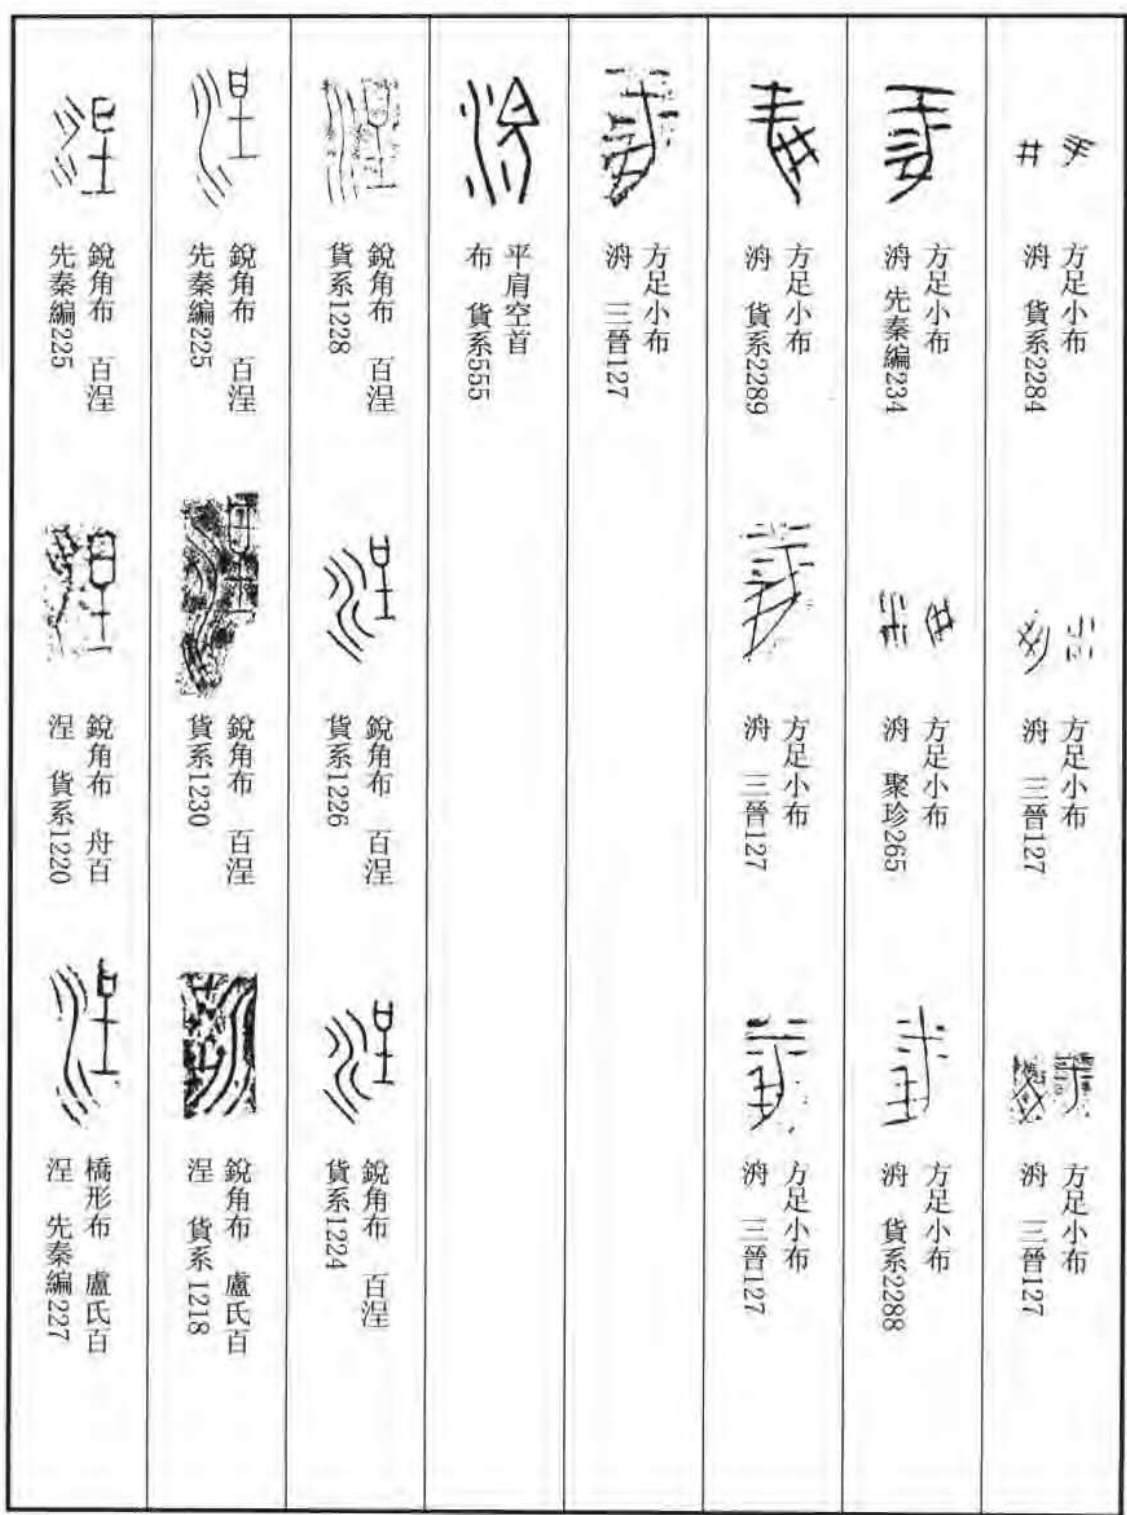 方足小布
洀 貨系2284
方足小布
洀 三晉127
方足小布
洀 三晉127
方足小布
洀 先秦編234
方足小布
洀 聚珍265
方足小布
洀 貨系2288
方足小布
洀 貨系2289
方足小布
洀 三晉127
方足小布
洀 三晉127
方足小布
洀 三晉127
平肩空首
布 貨系555
銳角布 百涅
貨系1228
銳角布 百涅
貨系1226
銳角布 百涅
貨系1224
銳角布 百涅
先秦編225
銳角布 百涅
貨系1230
銳角布 盧氏百
涅 貨系1218
銳角布 百涅
先秦編225
銳角布 舟百
涅 貨系1220
橋形布 盧氏百
涅 先秦編227